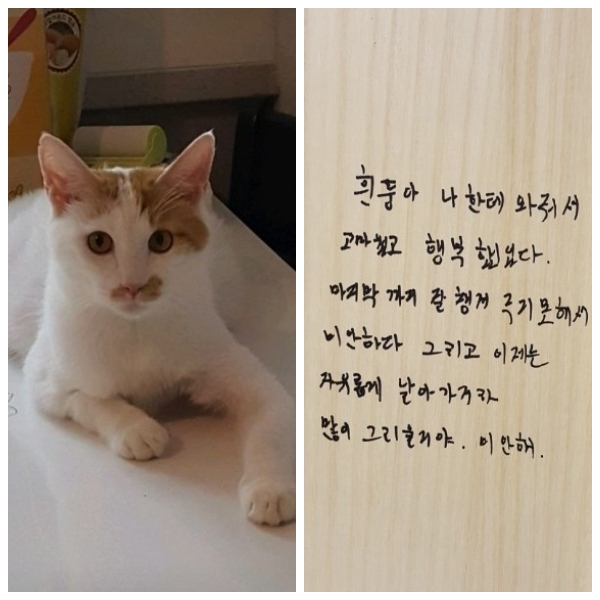 흰둥아 나한테 와줘서
고마웠고 행복했었다.
마지막까지 잘 챙겨 주지 못해서
미안하다 그리고 이제는
자유롭게 날아가거라
많이 그리울거야. 미안해.